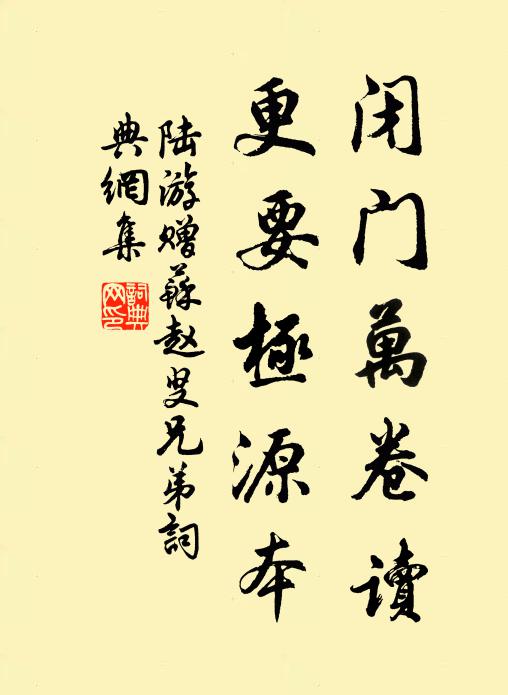 闭门萬卷读
更要極源本
陆游赠蘇赵叟兄弟詞
典網集
詞典
网印